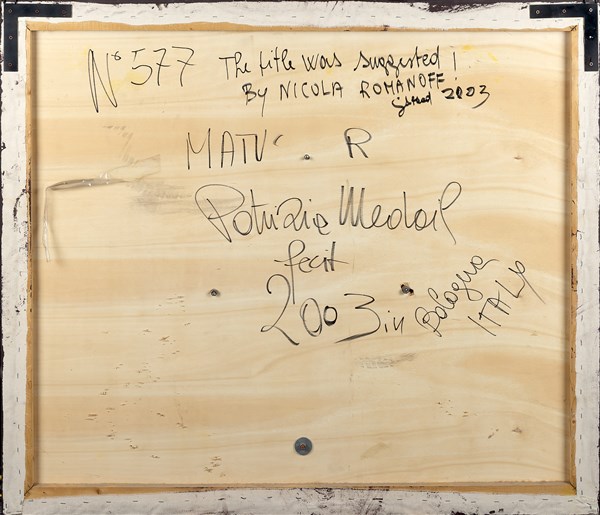 N° 577 The title was suggested!
By NICOLA ROMANOFF
2003
MATU' . R
Patrizia Medail
fecit
2003 in Bologna
ITALY